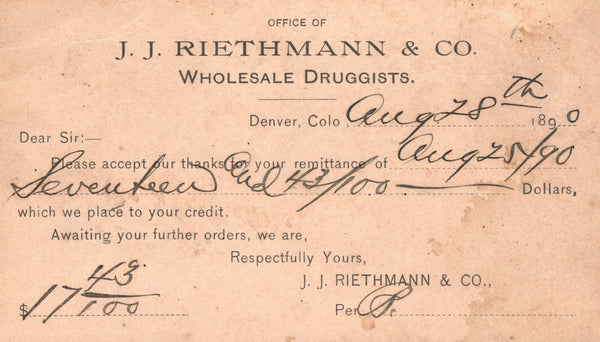 OFFICE OF
J. J. RIETHMANN & CO.
WHOLESALE DRUGGISTS.
Denver, Colo., Aug 28th 1890
Dear Sir:—
Please accept our thanks for your remittance of Aug 25/90
Seventeen and 43/100 Dollars,
which we place to your credit.
Awaiting your further orders, we are,
Respectfully Yours,
J. J. RIETHMANN & CO.,
$17 43/100 Per R.